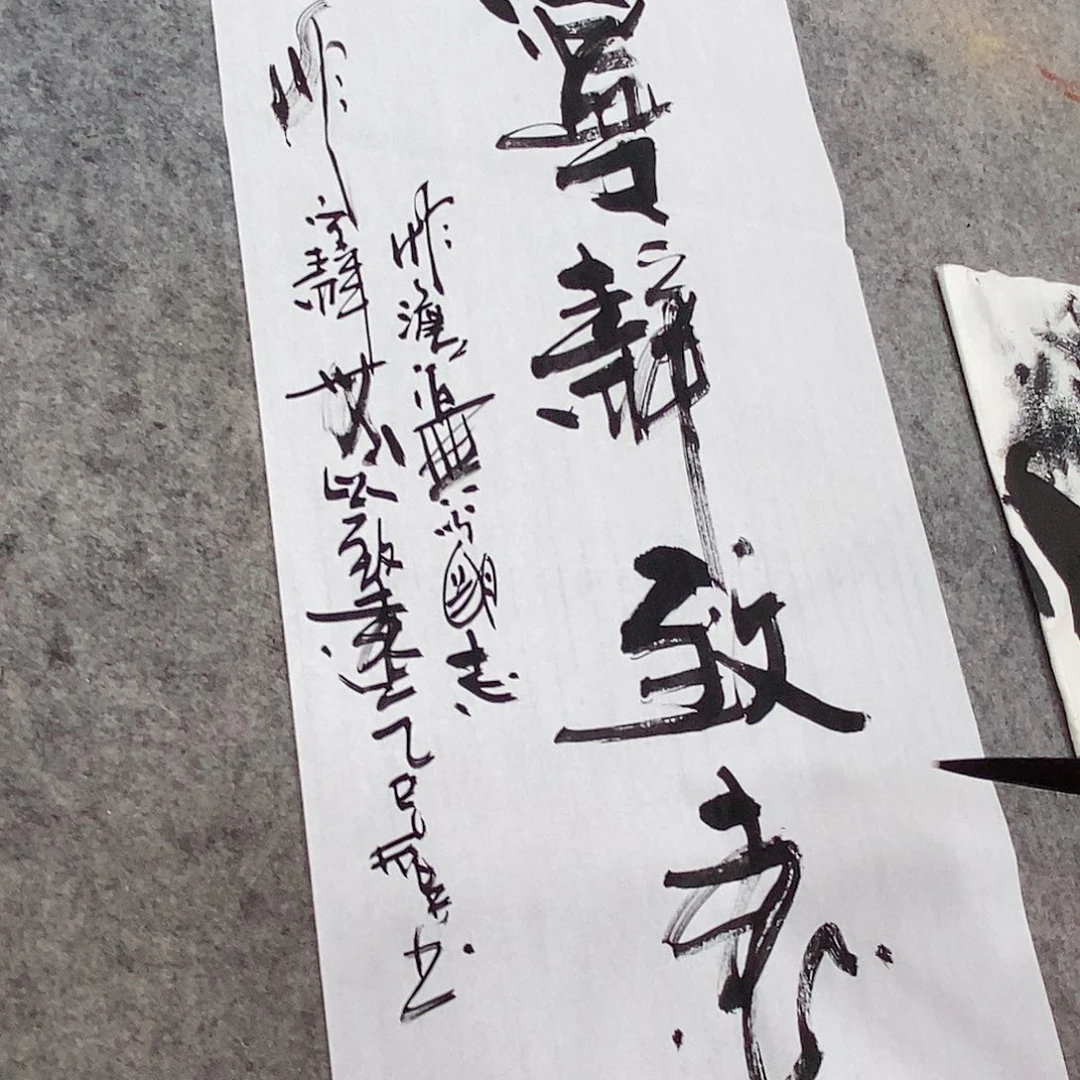 寧靜致遠
非澹泊無以明志
非寧靜無以致遠乙巳夏书